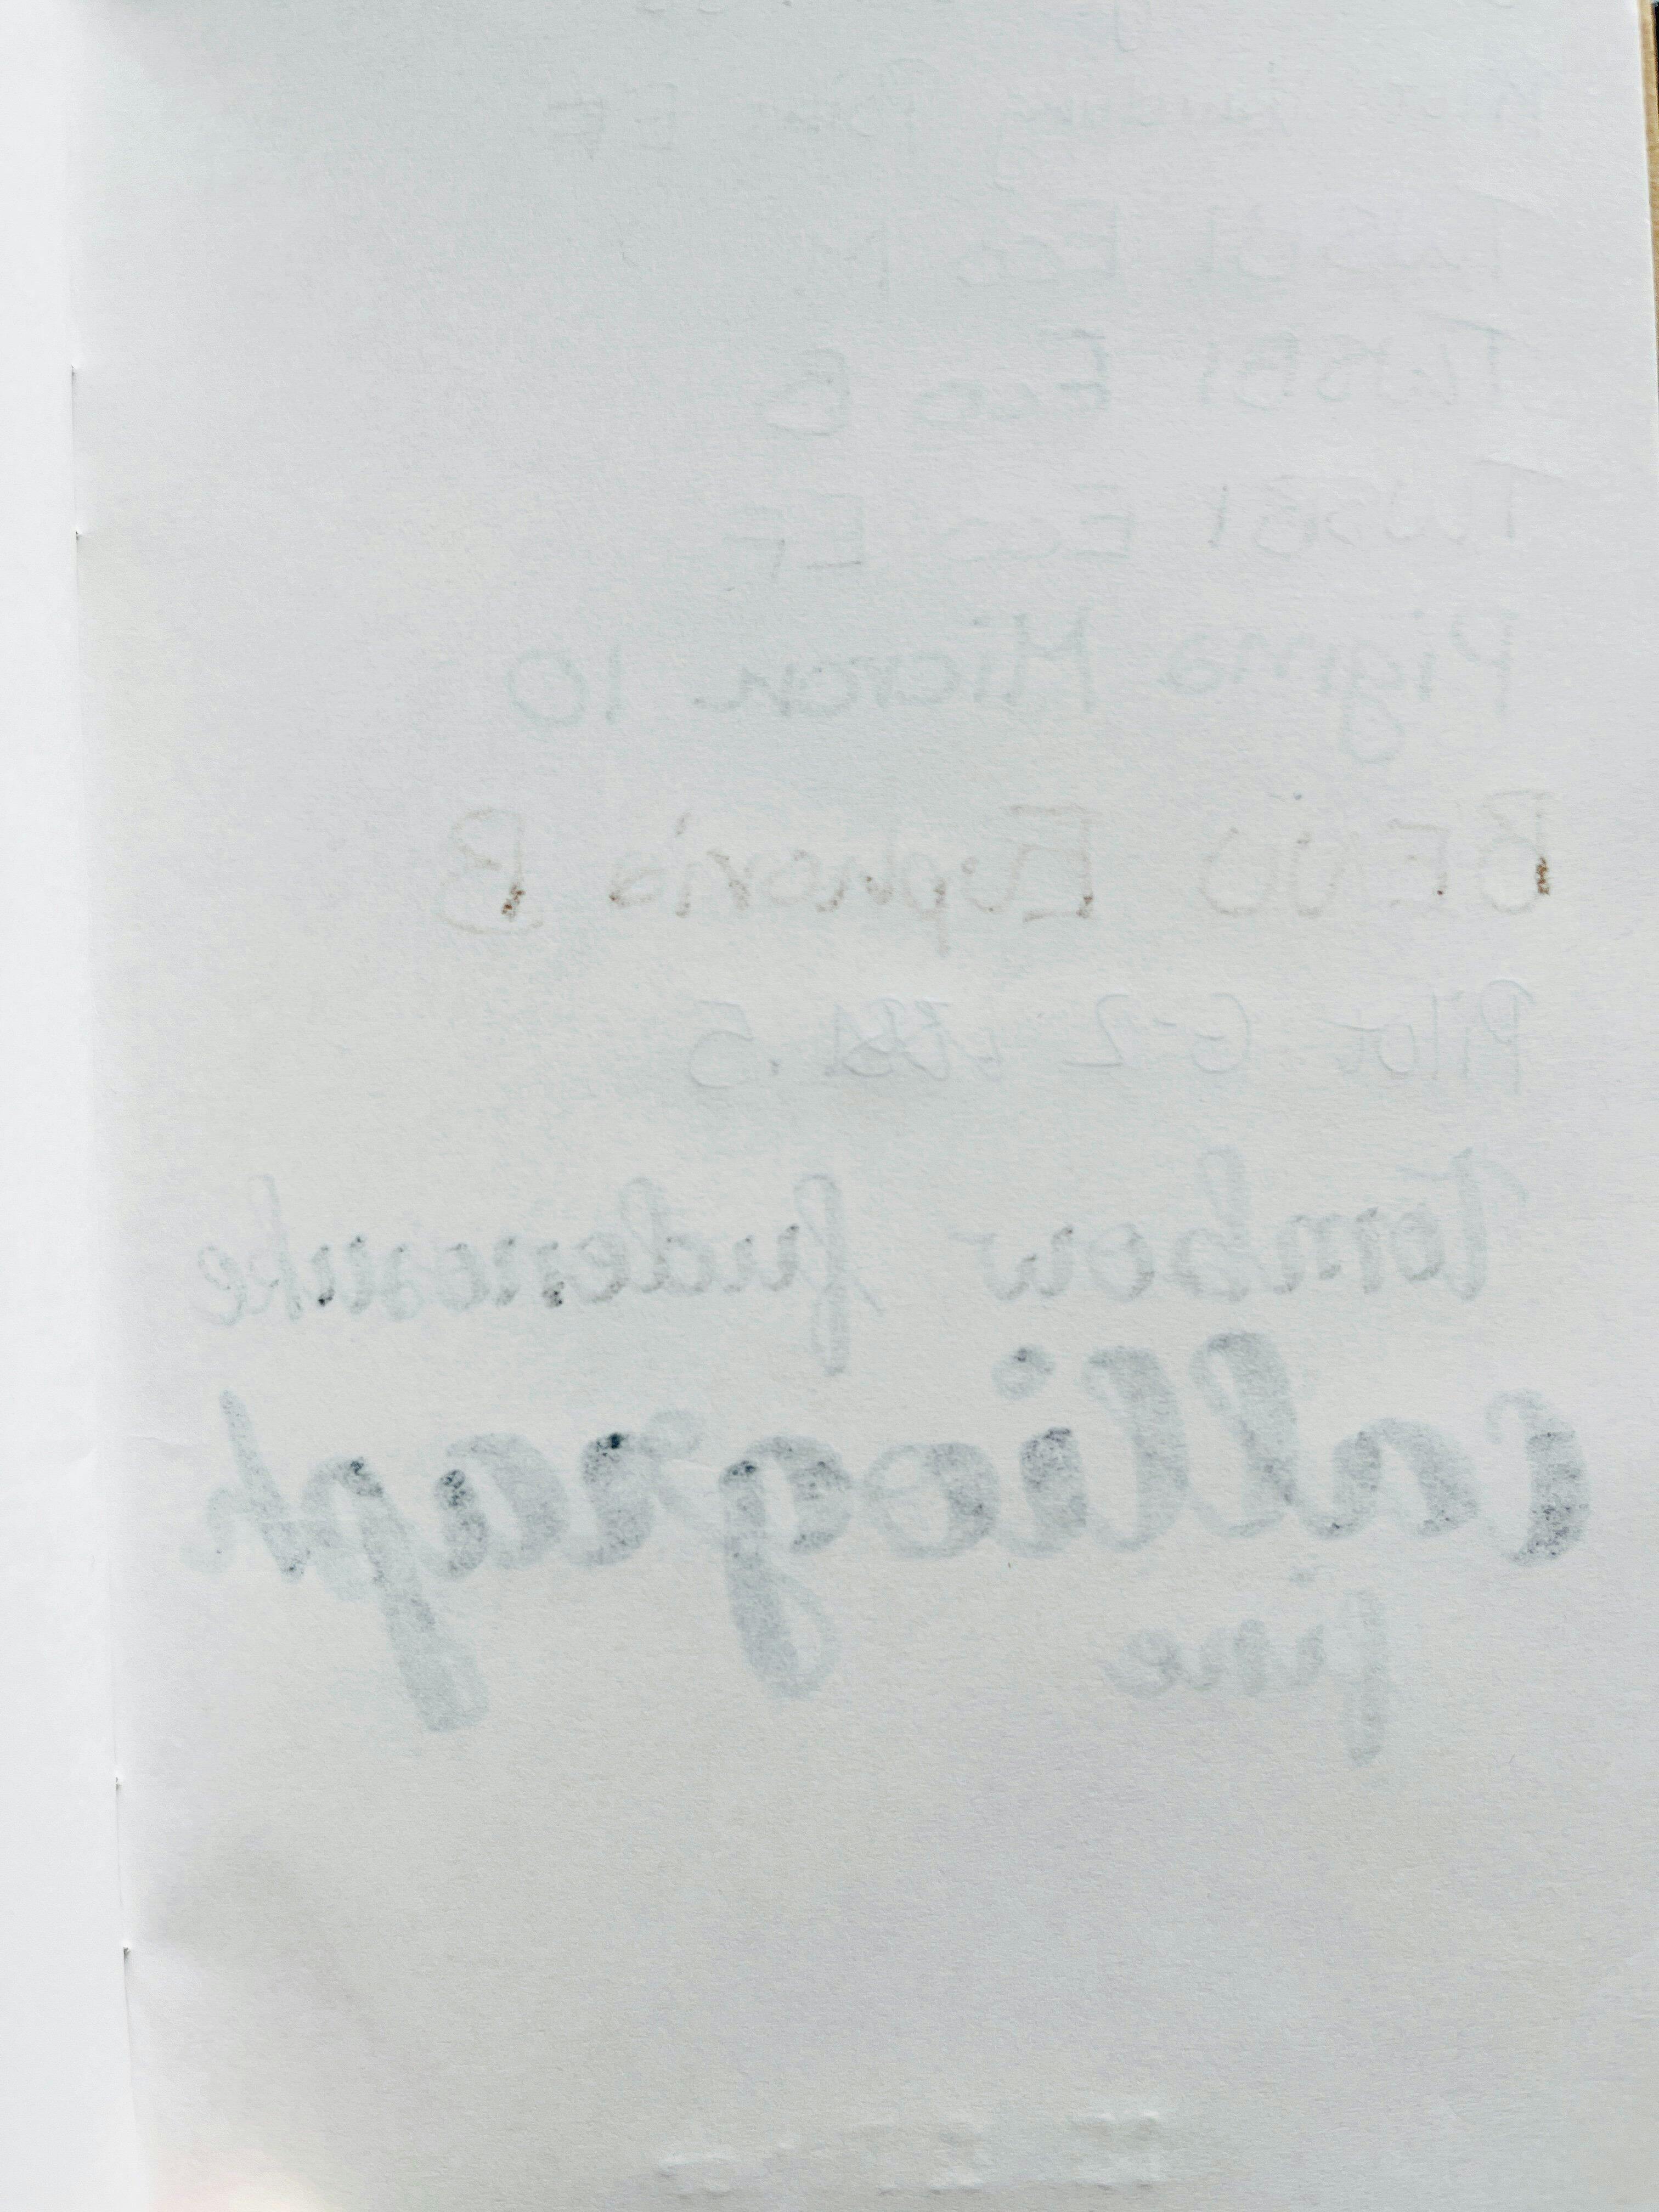 Pilot Penmanship EF
TWSBI Eco M
TWSBI Eco B
TWSBI Eco EF
Pigma Micron 10
BENU Euphoria B
Pilot G-2 .5
Tombow fudenosuke
Calligraph
fine